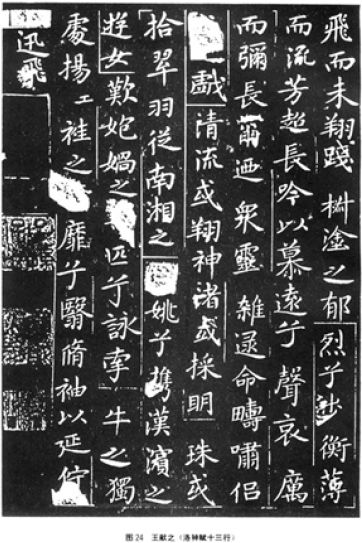 飛而未翔踐椒塗之郁烈兮步衡薄
而流芳超長吟以慕遠兮聲哀厲
而彌長爾迺眾靈雜遝命疇嘯侶
戲清流或翔神渚或採明珠或
拾翠羽從南湘之姚兮攜漢濱之
遊女歎妑媧之匹兮詠牽牛之獨
處揚袿之靡兮翳脩袖以延佇
迅飛
图24 王献之《洛神赋十三行》